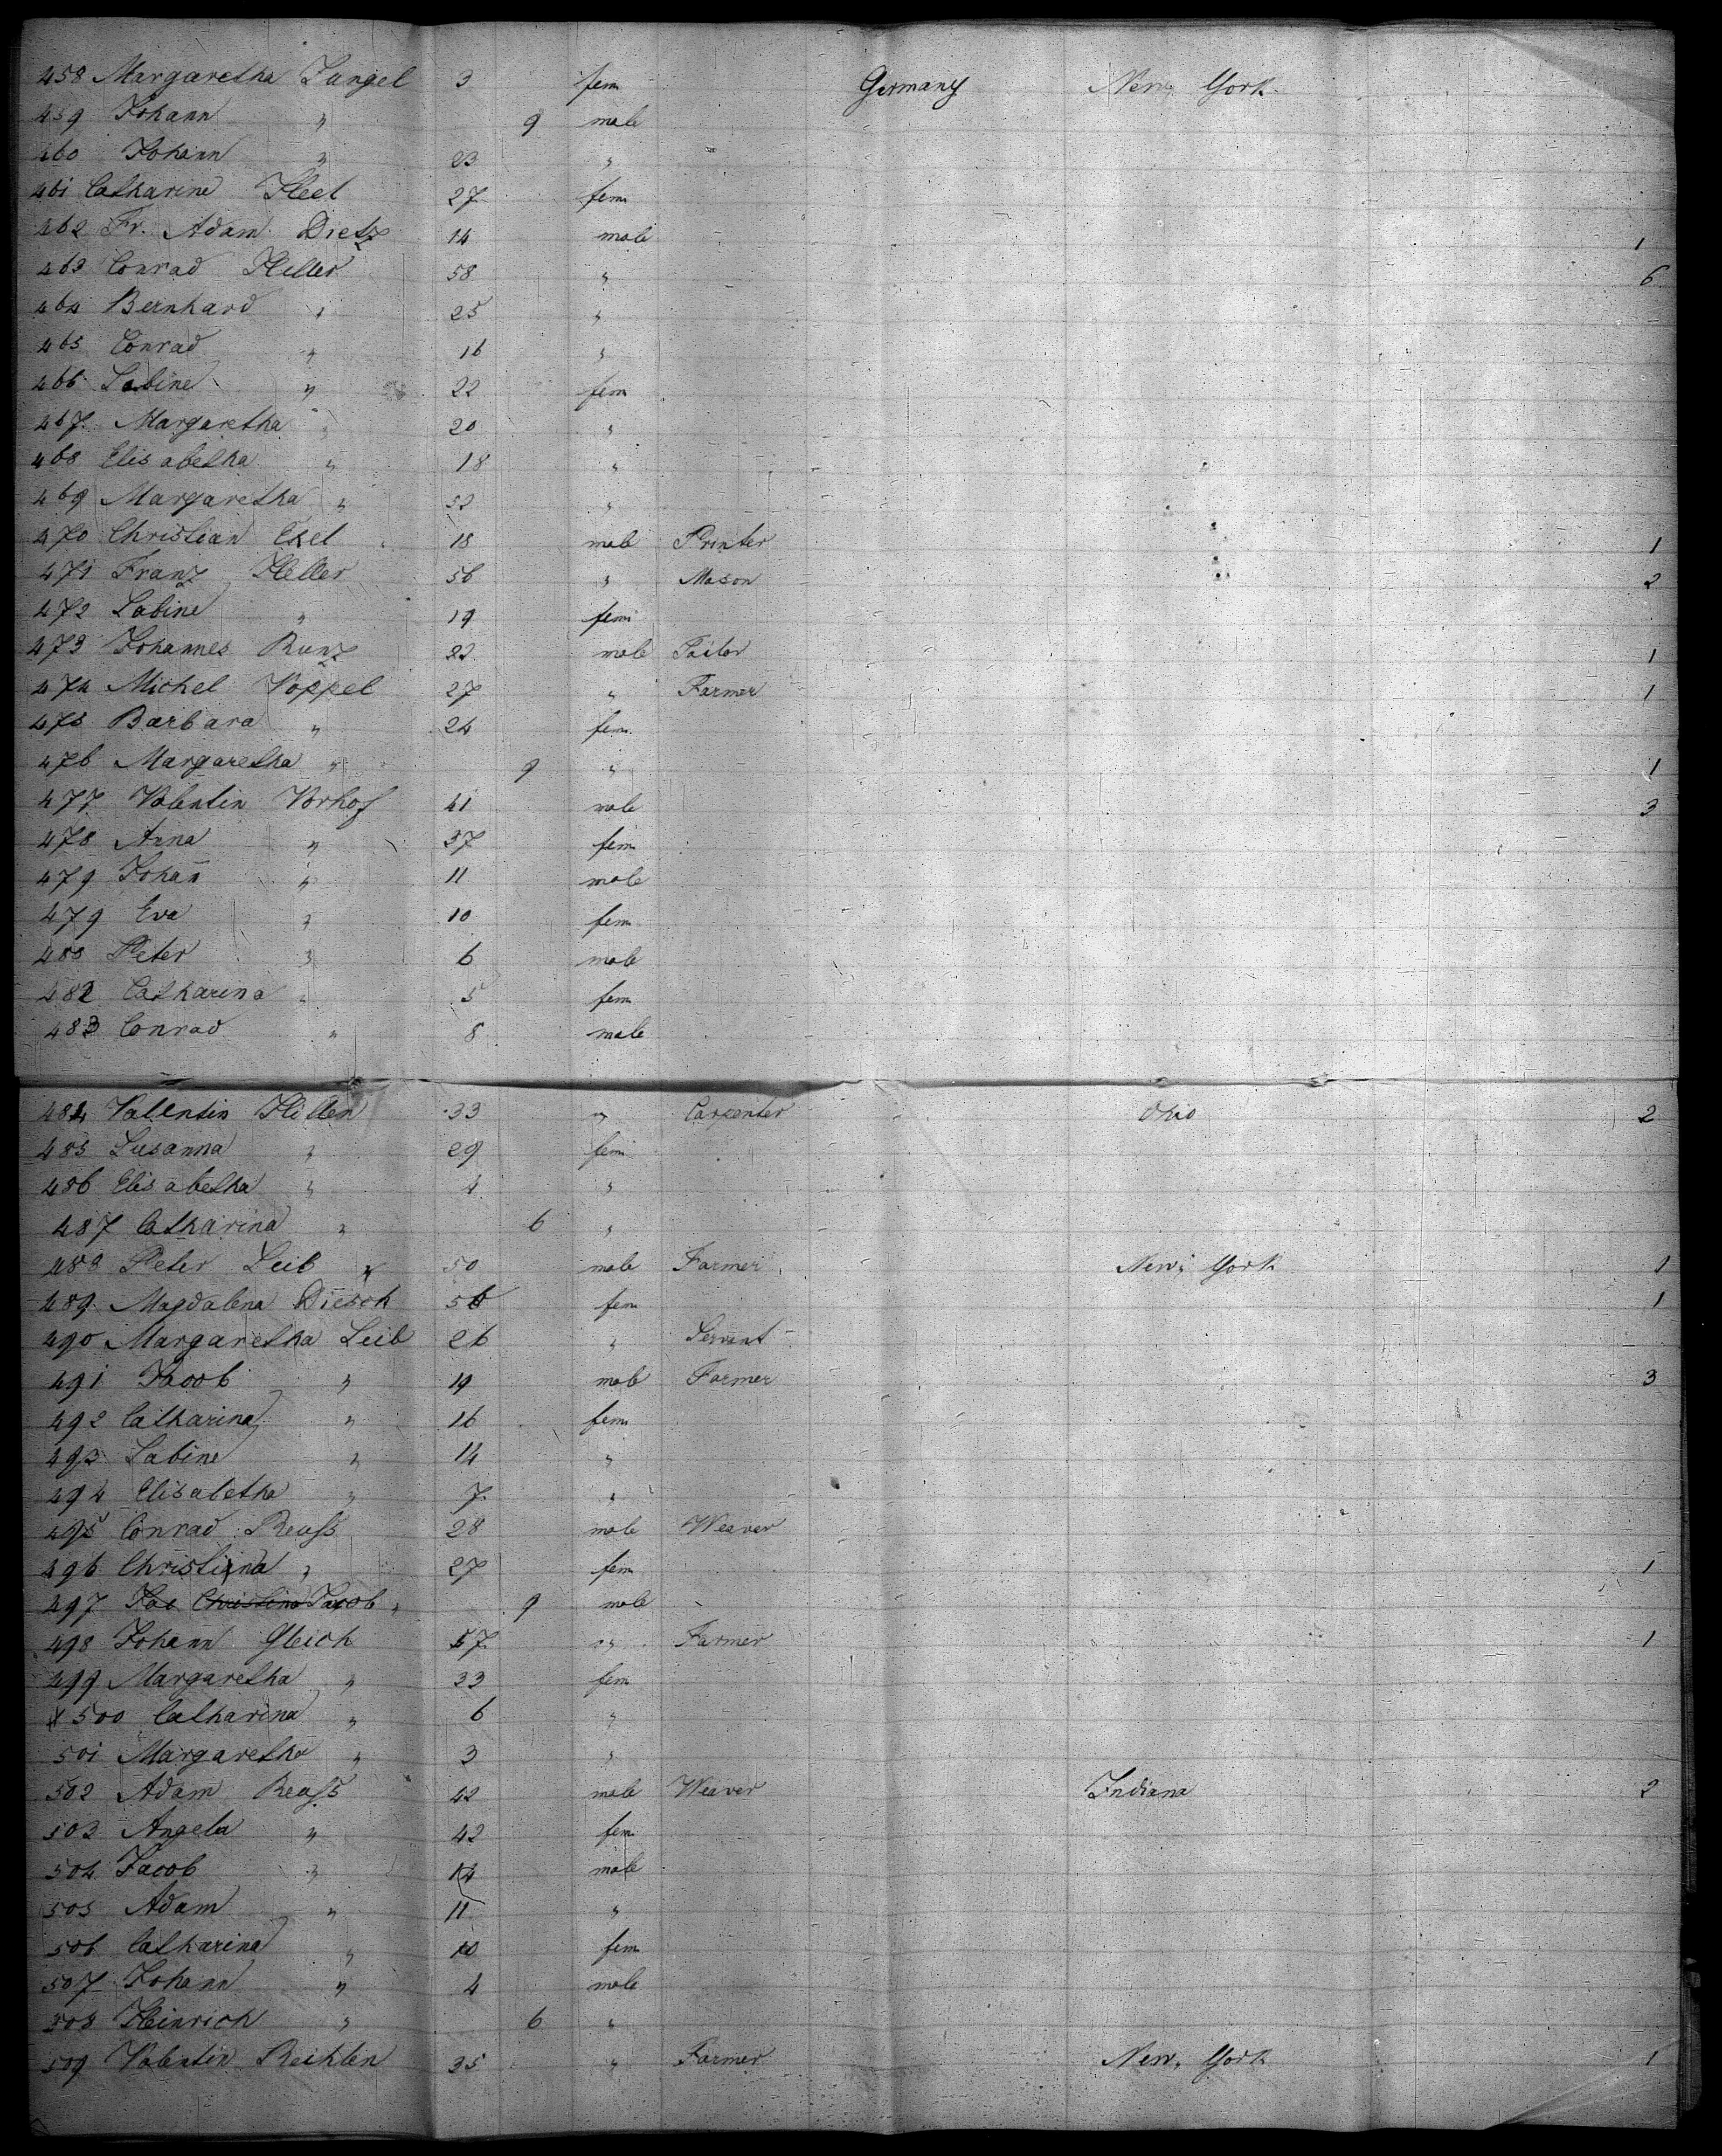 458 Margaretha Jungel 3 fem Germany New York
459 Johann " 9 male
460 Johann " 23 "
461 Catharine Heet 27 fem
462 Fr. Adam Dietz 14 male 1
463 Conrad Heller 58 " 6
464 Bernhard " 25 "
465 Conrad " 16 "
466 Sabine " 22 fem
467 Margaretha " 20 "
468 Elisabetha " 18 "
469 Margaretha " 52 "
470 Christian Exel 18 male Printer 1
471 Franz Heller 56 " Mason 2
472 Sabine " 19 fem
473 Johannes Runz 22 male Tailor 1
474 Michel Voppel 27 " Farmer 1
475 Barbara " 24 fem
476 Margaretha " 9 " 1
477 Valentin Vorhof 41 male 3
478 Anna " 37 fem
479 Johan̄ " 11 male
479 Eva " 10 fem
480 Peter " 6 male
482 Catharina " 5 fem
483 Conrad " 8 male
484 Valentin Hillen 33 " Carpenter Ohio 2
485 Susanna " 29 fem
486 Elisabetha " 4 "
487 Catharina " 6 "
488 Peter Leib 50 male Farmer New York 1
489 Magdalena Diesch 56 fem 1
490 Margaretha Leib 26 " Servant
491 Jacob " 19 male Farmer 3
492 Catharina " 16 fem
493 Sabine " 14 "
494 Elisabetha " 7 "
495 Conrad Reuss 28 male Weaver
496 Christina " 27 fem 1
497 Jac Christina Jacob " 9 male
498 Johann Gleich 57 " Farmer 1
499 Margaretha " 33 fem
500 Catharina " 6 "
501 Margaretha " 3 "
502 Adam Reuss 42 male Weaver Indiana 2
503 Angela " 42 fem
504 Jacob " 14 male
505 Adam " 11 "
506 Catharina " 10 fem
507 Johann " 4 male
508 Heinrich " 6 "
509 Valentin Reihlen 35 " Farmer New York 1